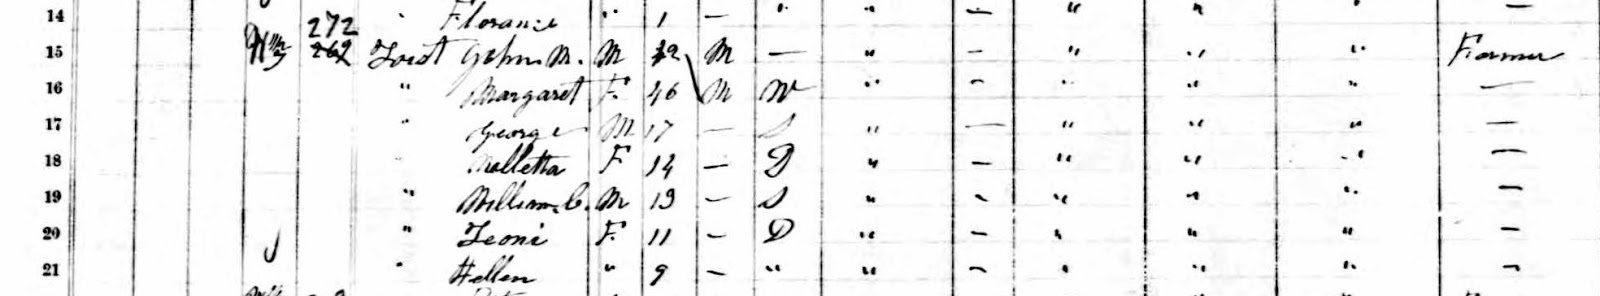 14 " Florance " 1 — " " — " " " —
272
15 262 Toist John M. M 42 M — " — " " " Farmer
16 " Margaret F. 46 M W " — " " " —
17 " George M 17 — S " — " " " —
18 " Malletta F 14 — D " — " " " —
19 " William C. M 13 — S " — " " " —
20 " Leoni F. 11 — D " — " " " —
21 " Hellen " 9 — " " — " " " —